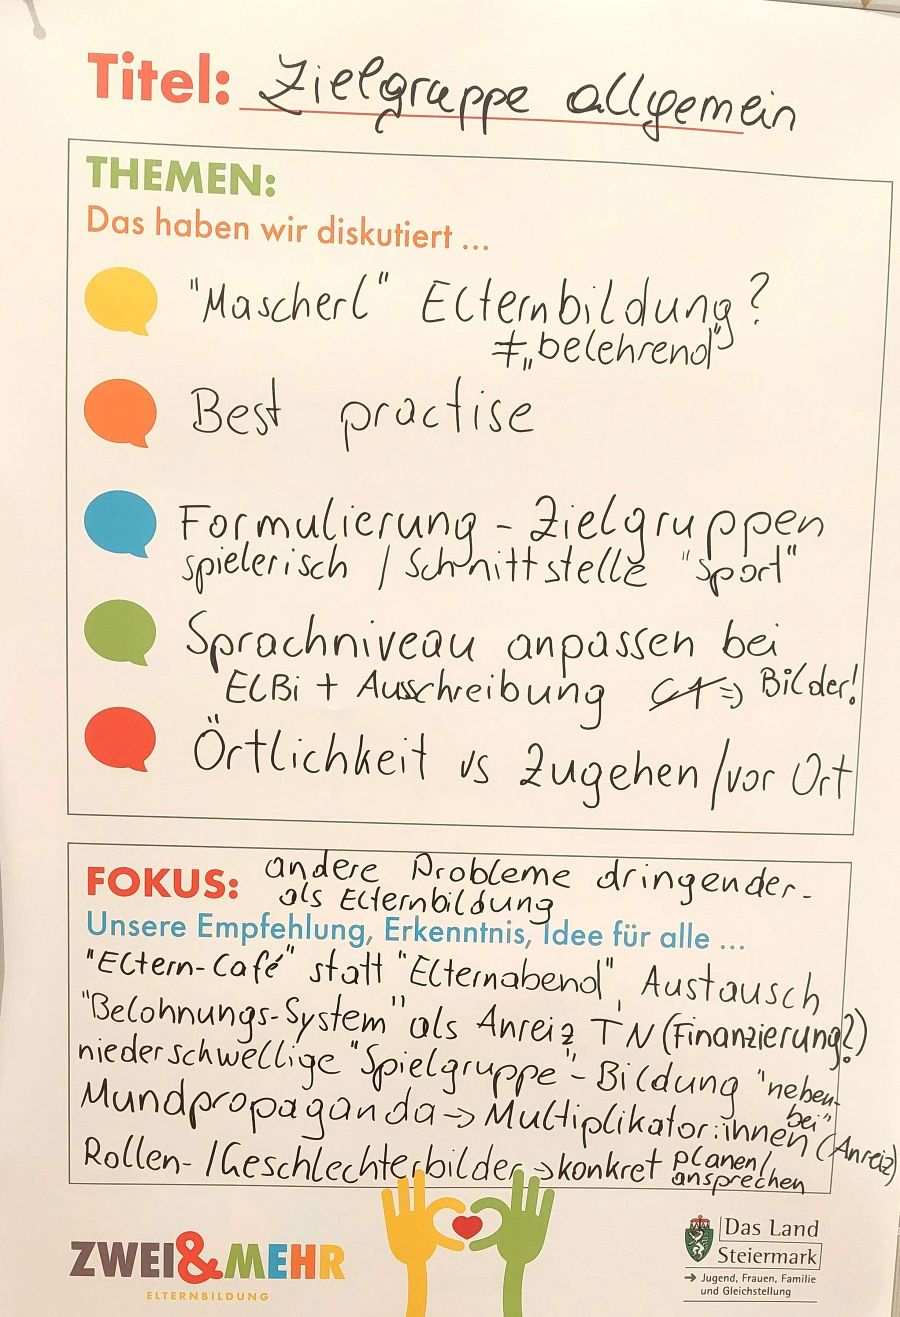 Titel: Zielgruppe allgemein
THEMEN:
Das haben wir diskutiert ...
"Mascherl" Elternbildung?
≠ „belehrend"
Best practise
Formulierung - Zielgruppen
spielerisch / Schnittstelle "Sport"
Sprachniveau anpassen bei
ElBi + Ausschreibung C1 => Bilder!
Örtlichkeit vs Zugehen / vor Ort
FOKUS: andere Probleme dringender
als Elternbildung
Unsere Empfehlung, Erkenntnis, Idee für alle ...
"Eltern-Café" statt "Elternabend", Austausch
"Belohnungs-System" als Anreiz TN (Finanzierung?)
niederschwellige "Spielgruppe" - Bildung "neben-
bei"
Mundpropaganda -> Multiplikator:innen (Anreiz)
Rollen- / Geschlechterbilder -> konkret planen /
ansprechen
ZWEI&MEHR
ELTERNBILDUNG
Das Land
Steiermark
→ Jugend, Frauen, Familie
und Gleichstellung